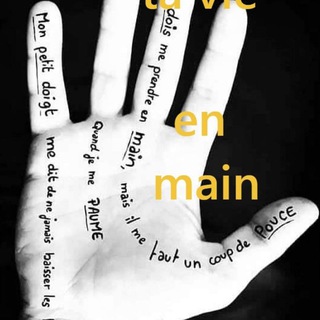 ta vie
en
main
Mon petit doigt me dit de ne jamais baisser les
Quand je me PAUME
dois me prendre en main, mais il me faut un coup de POUCE